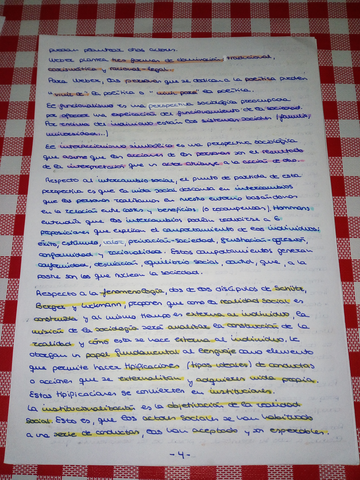 puedan plantear otras clases.
Weber plantea tres formas de dominación: tradicional,
carismática y racional-legal.
Para Weber, las personas que se dedican a la política pueden
"vivir de" la política o "vivir para" la política.
El funcionalismo es una perspectiva sociológica preocupada
por ofrecer una explicación del funcionamiento de la sociedad.
Por encima del individuo están los sistemas sociales (familia,
universidad...)
El interaccionismo simbólico es una perspectiva sociológica
que asume que las acciones de las personas son el resultado
de la interpretación que un actor otorga a la acción de otro.
Respecto al intercambio social, el punto de partida de esta
perspectiva es que la vida social descansa en intercambios
que las personas realizamos en nuestro entorno basándonos
en la relación entre costes y beneficios (o recompensas). Homans
entendía que las interacciones podían reducirse a 6
proposiciones que explican el comportamiento de los individuos:
éxito, estímulo, valor, privación-saciedad, frustración-agresión,
conformidad y racionalidad. Estos comportamientos generan
conformidad, equilibrio social, que, a la
postre son los que rodean la sociedad.
Respecto a la fenomenología, dos de los discípulos de Schütz,
Berger y Luckmann, proponen que como la realidad social es
construida y al mismo tiempo es externa al individuo, la
misión de la sociología será analizar la construcción de la
realidad y cómo esta se hace externa al individuo. Le
otorgan un papel fundamental al lenguaje como elemento
que permite hacer tipificaciones (tipos ideales) de conductas
o acciones que se externalizan y adquieren vida propia.
Estas tipificaciones se convierten en instituciones.
La institucionalización es la objetivación de la realidad
social. Esto es, que los actores sociales se han habituado
a una serie de conductas, las han aceptado y son esperables.
- 4 -